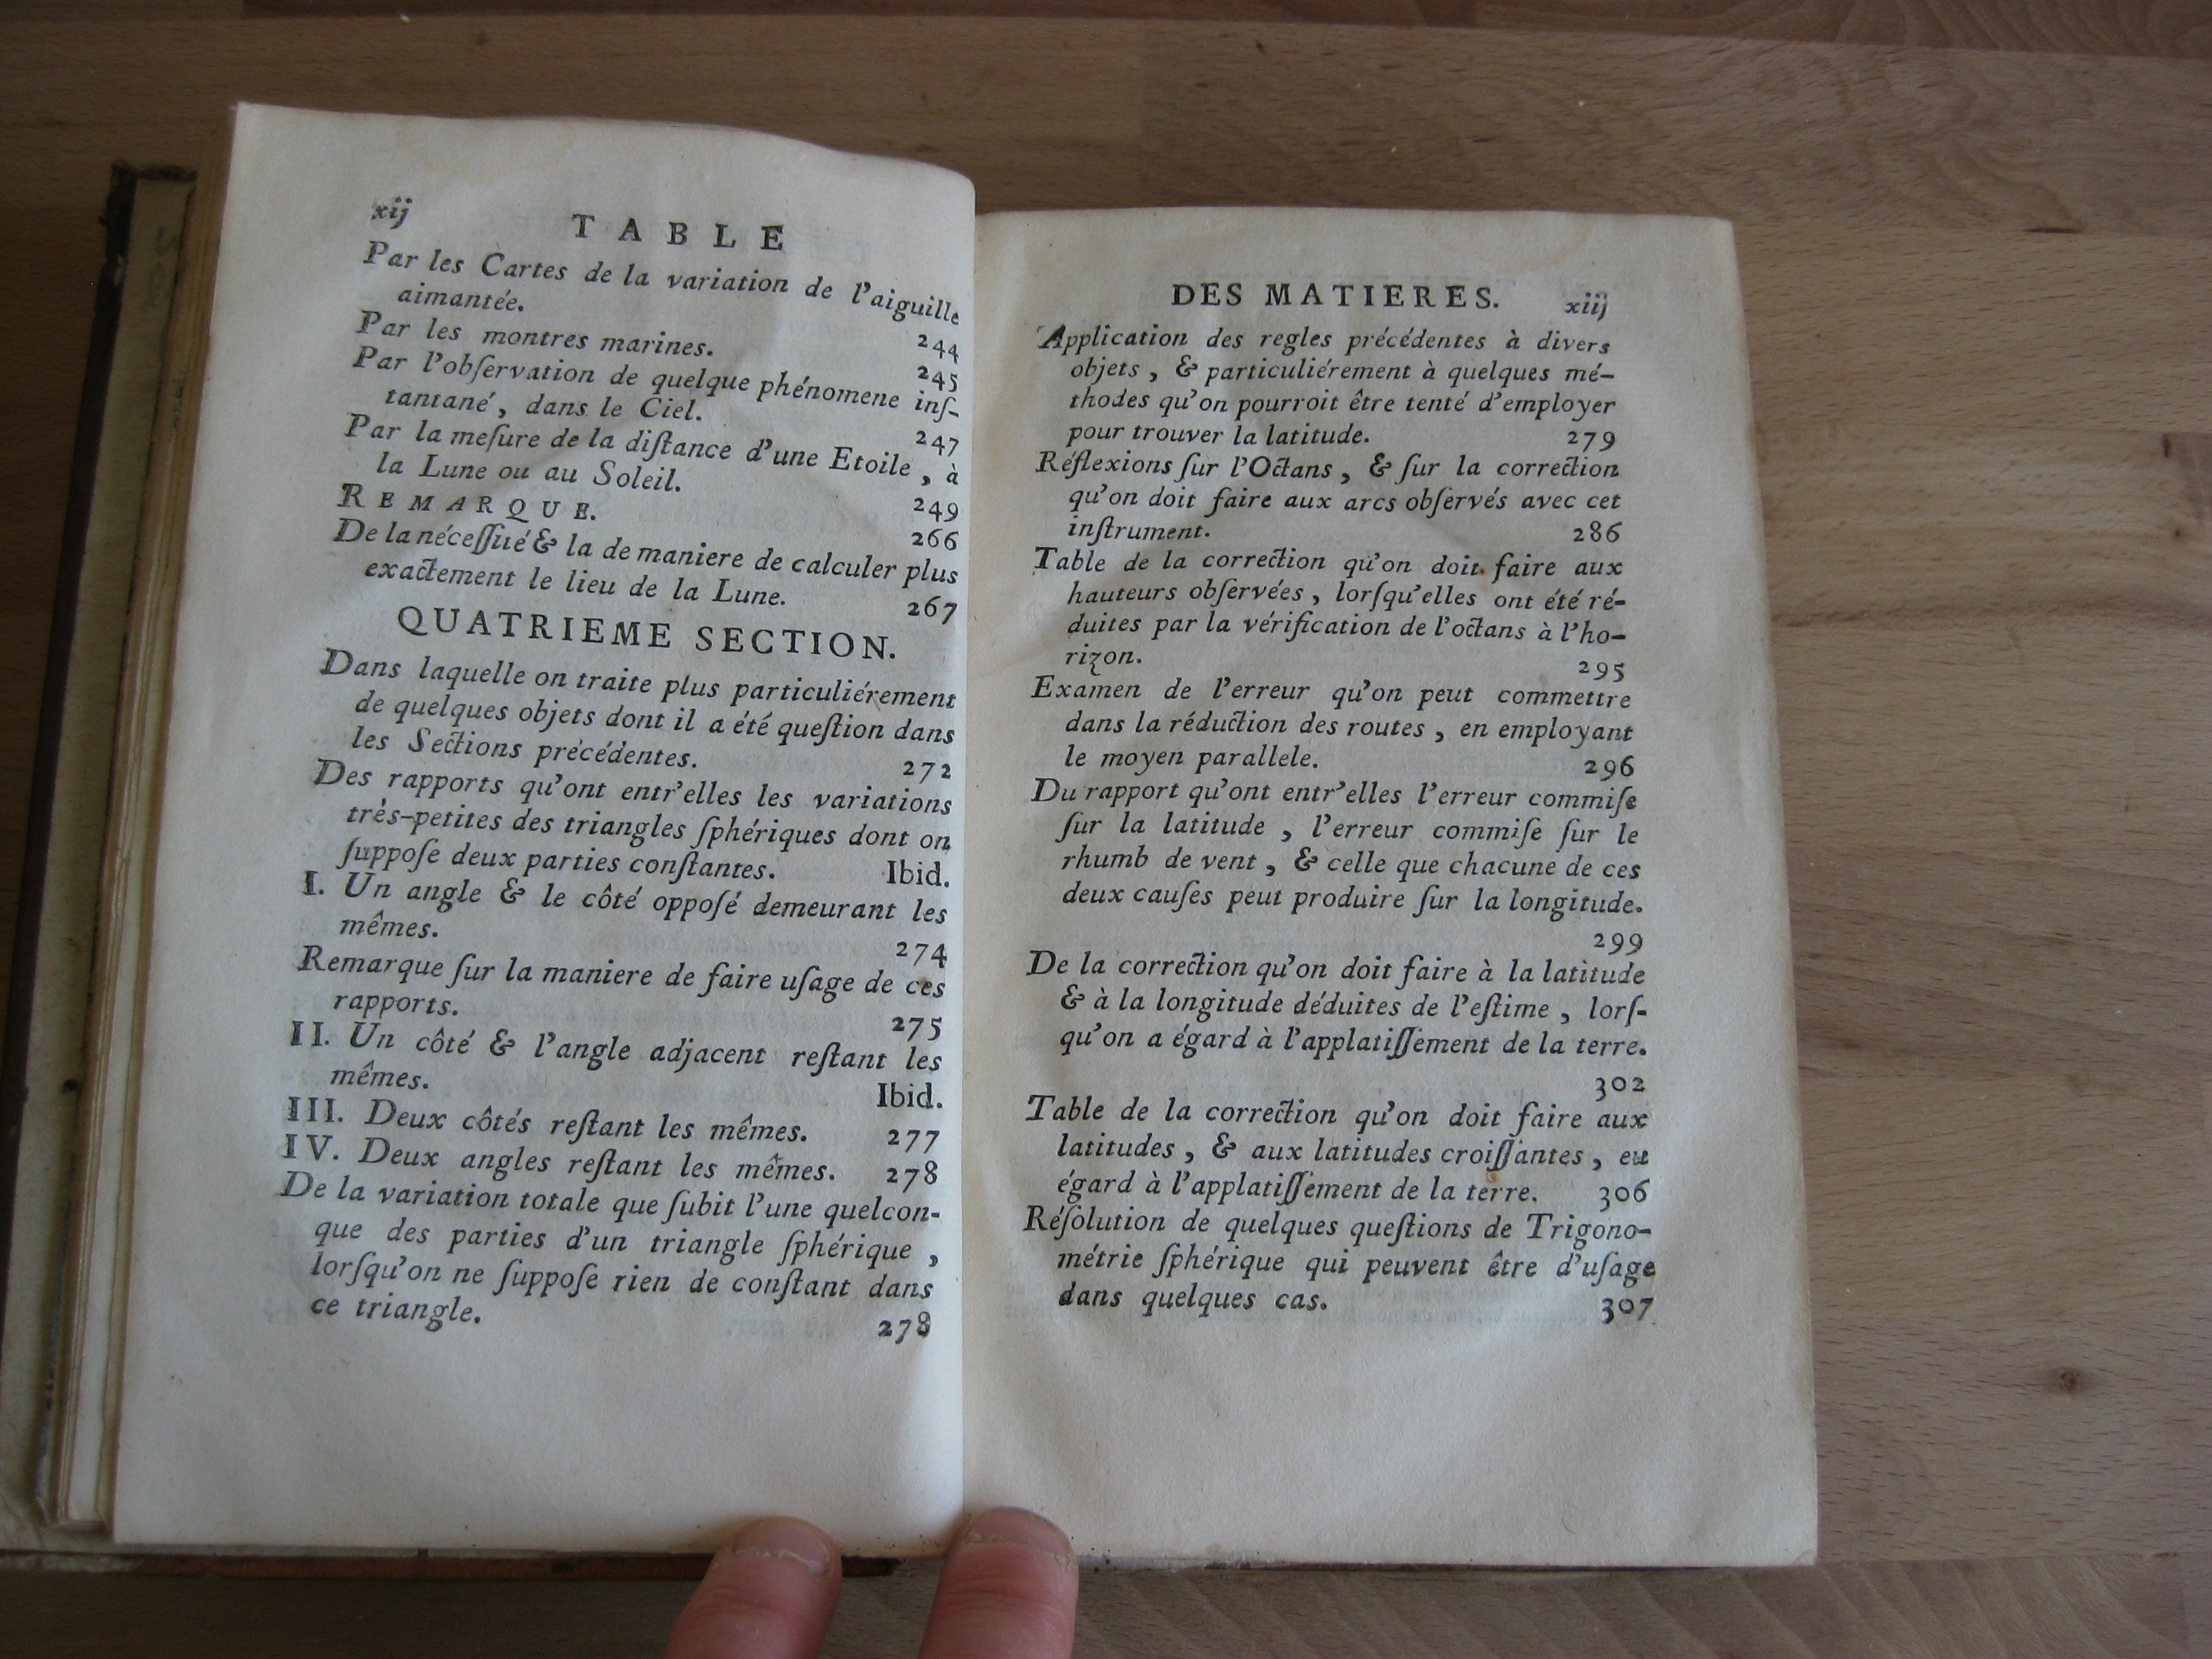 xij
TABLE
Par les Cartes de la variation de l'aiguille
aimantée. 244
Par les montres marines. 245
Par l'obſervation de quelque phénomene inſ-
tantané, dans le Ciel. 247
Par la meſure de la diſtance d'une Etoile, à
la Lune ou au Soleil. 249
REMARQUE. 266
De la néceſſité & la de maniere de calculer plus
exactement le lieu de la Lune. 267
QUATRIEME SECTION.
Dans laquelle on traite plus particuliérement
de quelques objets dont il a été queſtion dans
les Sections précédentes. 272
Des rapports qu'ont entr'elles les variations
très-petites des triangles ſphériques dont on
ſuppoſe deux parties conſtantes. Ibid.
I. Un angle & le côté oppoſé demeurant les
mêmes. 274
Remarque ſur la maniere de faire uſage de ces
rapports. 275
II. Un côté & l'angle adjacent reſtant les
mêmes. Ibid.
III. Deux côtés reſtant les mêmes. 277
IV. Deux angles reſtant les mêmes. 278
De la variation totale que ſubit l'une quelcon-
que des parties d'un triangle ſphérique,
lorſqu'on ne ſuppoſe rien de conſtant dans
ce triangle. 278
DES MATIERES. xiij
Application des regles précédentes à divers
objets, & particuliérement à quelques mé-
thodes qu'on pourroit être tenté d'employer
pour trouver la latitude. 279
Réflexions ſur l'Octans, & ſur la correction
qu'on doit faire aux arcs obſervés avec cet
inſtrument. 286
Table de la correction qu'on doit faire aux
hauteurs obſervées, lorſqu'elles ont été ré-
duites par la vérification de l'octans à l'ho-
rizon. 295
Examen de l'erreur qu'on peut commettre
dans la réduction des routes, en employant
le moyen parallele. 296
Du rapport qu'ont entr'elles l'erreur commiſe
ſur la latitude, l'erreur commiſe ſur le
rhumb de vent, & celle que chacune de ces
deux cauſes peut produire ſur la longitude.
299
De la correction qu'on doit faire à la latitude
& à la longitude déduites de l'eſtime, lorſ-
qu'on a égard à l'applatiſſement de la terre.
302
Table de la correction qu'on doit faire aux
latitudes, & aux latitudes croiſſantes, eu
égard à l'applatiſſement de la terre. 306
Réſolution de quelques queſtions de Trigono-
métrie ſphérique qui peuvent être d'uſage
dans quelques cas. 307